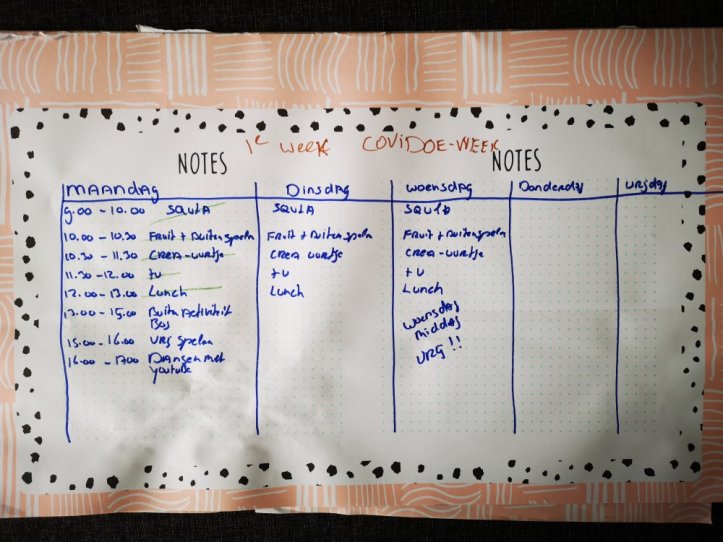 1e week COVIDOE-WEEK
NOTES NOTES
MAANDAG Dinsdag Woensdag Donderdag Vrijdag
9.00 - 10.00 SQULA SQULA SQULA
10.00 - 10.30 Fruit + Buitenspelen Fruit + Buitenspelen Fruit + Buitenspelen
10.30 - 11.30 CREA-uurtje CREA uurtje CREA-uurtje
11.30 - 12.00 tv tv tv
12.00 - 13.00 Lunch Lunch Lunch
13.00 - 15.00 Buiten Activiteit
Bos
Woensdag
middag
VRIJ!!
15.00 - 16.00 VRIJ spelen
16.00 - 17.00 Dansen met
youtube